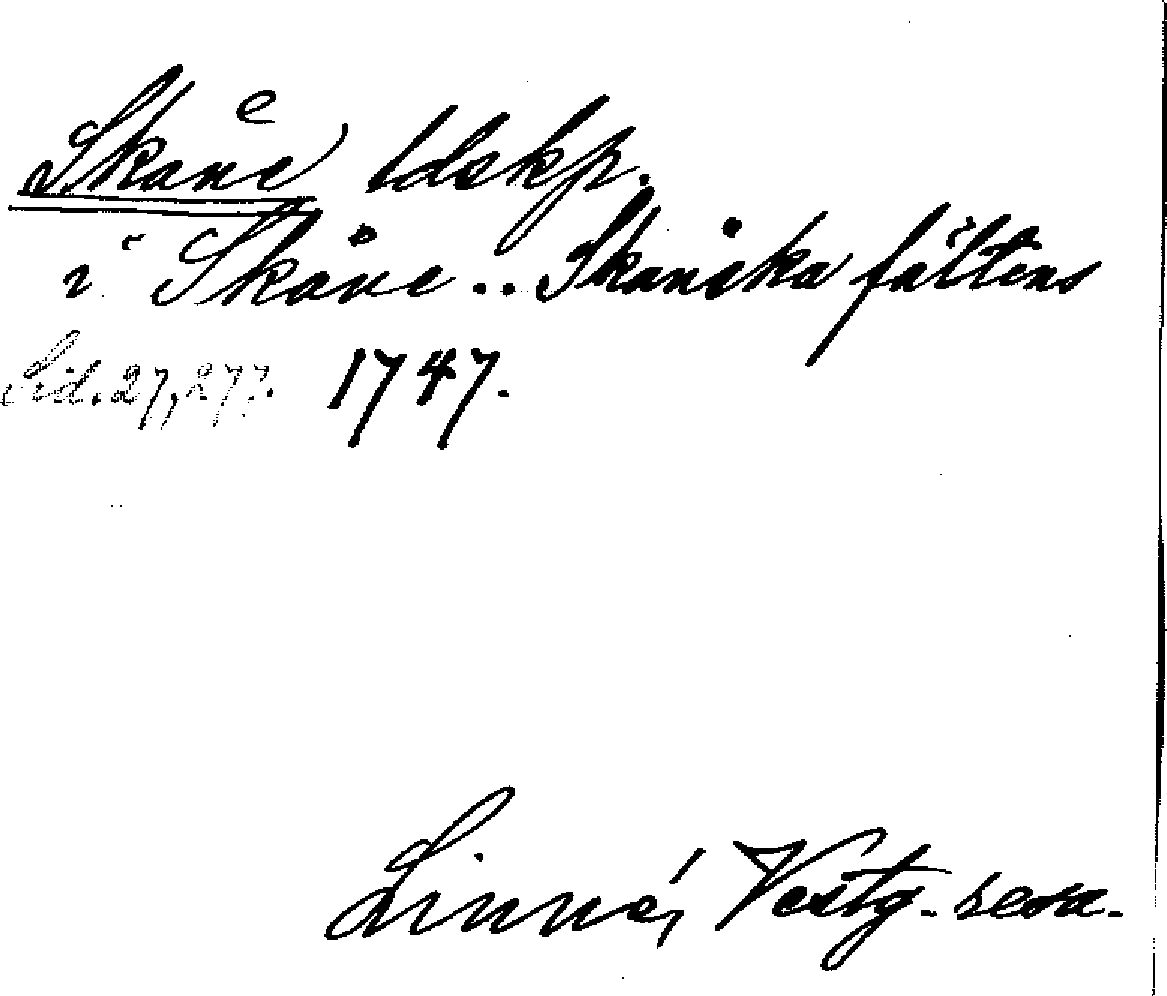 Skåne ldskp.
i Skåne .. Skånska fältens
Sid. 27, 277. 1747.
Linné, Vestg. resa.